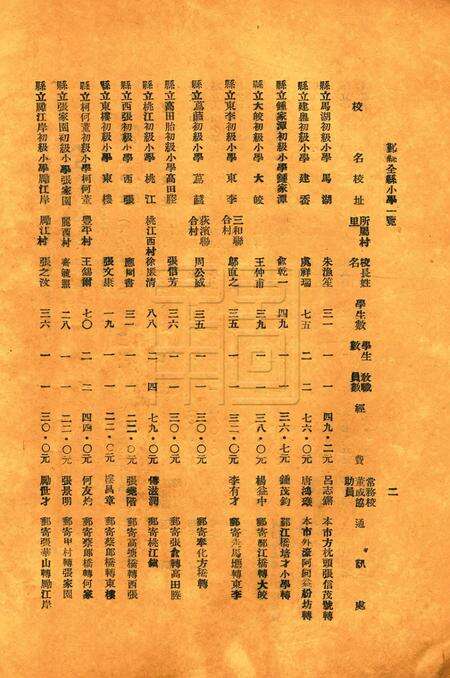 鄞縣全縣小學一覽 二
校名 校址 所屬村里 校長姓名 學生數 學級數 教職員數 經費 常務校董或協助員 通訊處
縣立馬湖初級小學 馬湖 朱漁笙 三一 一 一 四九·二元 呂志 本市方枕頭張信茂號轉
縣立建嶴初級小學 建嶴 虞祥瑞 七五 二 二 七六·〇元 唐鴻 本市外濠河 紛坊轉
縣立鍾家潭初級小學 鍾家潭 俞乾一 四九 一 一 三六·七元 鍾茂鈞 鄞江橋培才小學轉
縣立大皎初級小學 大皎 王仲甫 三九 一 一 三八·〇元 楊益中 郵寄鄞江橋轉大皎
縣立東李初級小學 東李 三和聯合村 鄔直之 三五 一 一 三二·〇元 李有才 郵寄走馬塘轉東李
縣立 初級小學 荻濱聯合村 周公威 三五 一 一 三〇·〇元 郵寄奉化方橋轉
縣立高田 初級小學 高田 張信芳 三六 一 一 三〇·〇元 郵寄張俞轉高田
縣立桃江初級小學 桃江 桃江西村 徐振清 八八 二 四 七九·〇元 傅滋潤 郵寄桃江鎮
縣立西張初級小學 西張 應 書 三一 一 一 二二·〇元 張 階 郵寄高塘橋轉西張
縣立東樓初級小學 東樓 張文 一九 一 一 二二·〇元 樓昌章 郵寄蔡郎橋轉東樓
縣立柯何董初級小學 柯何董 豐平村 王錫爵 七〇 二 二 四四·〇元 何友灼 郵寄蔡郎橋轉何家
縣立張家園初級小學 張家園 西村 二八 一 一 二二·〇元 張景明 郵寄甲村轉張家園
縣立勵江岸初級小學 勵江岸 勵江村 張之汝 三六 一 一 三〇·〇元 勵世才 郵寄 華山轉勵江岸